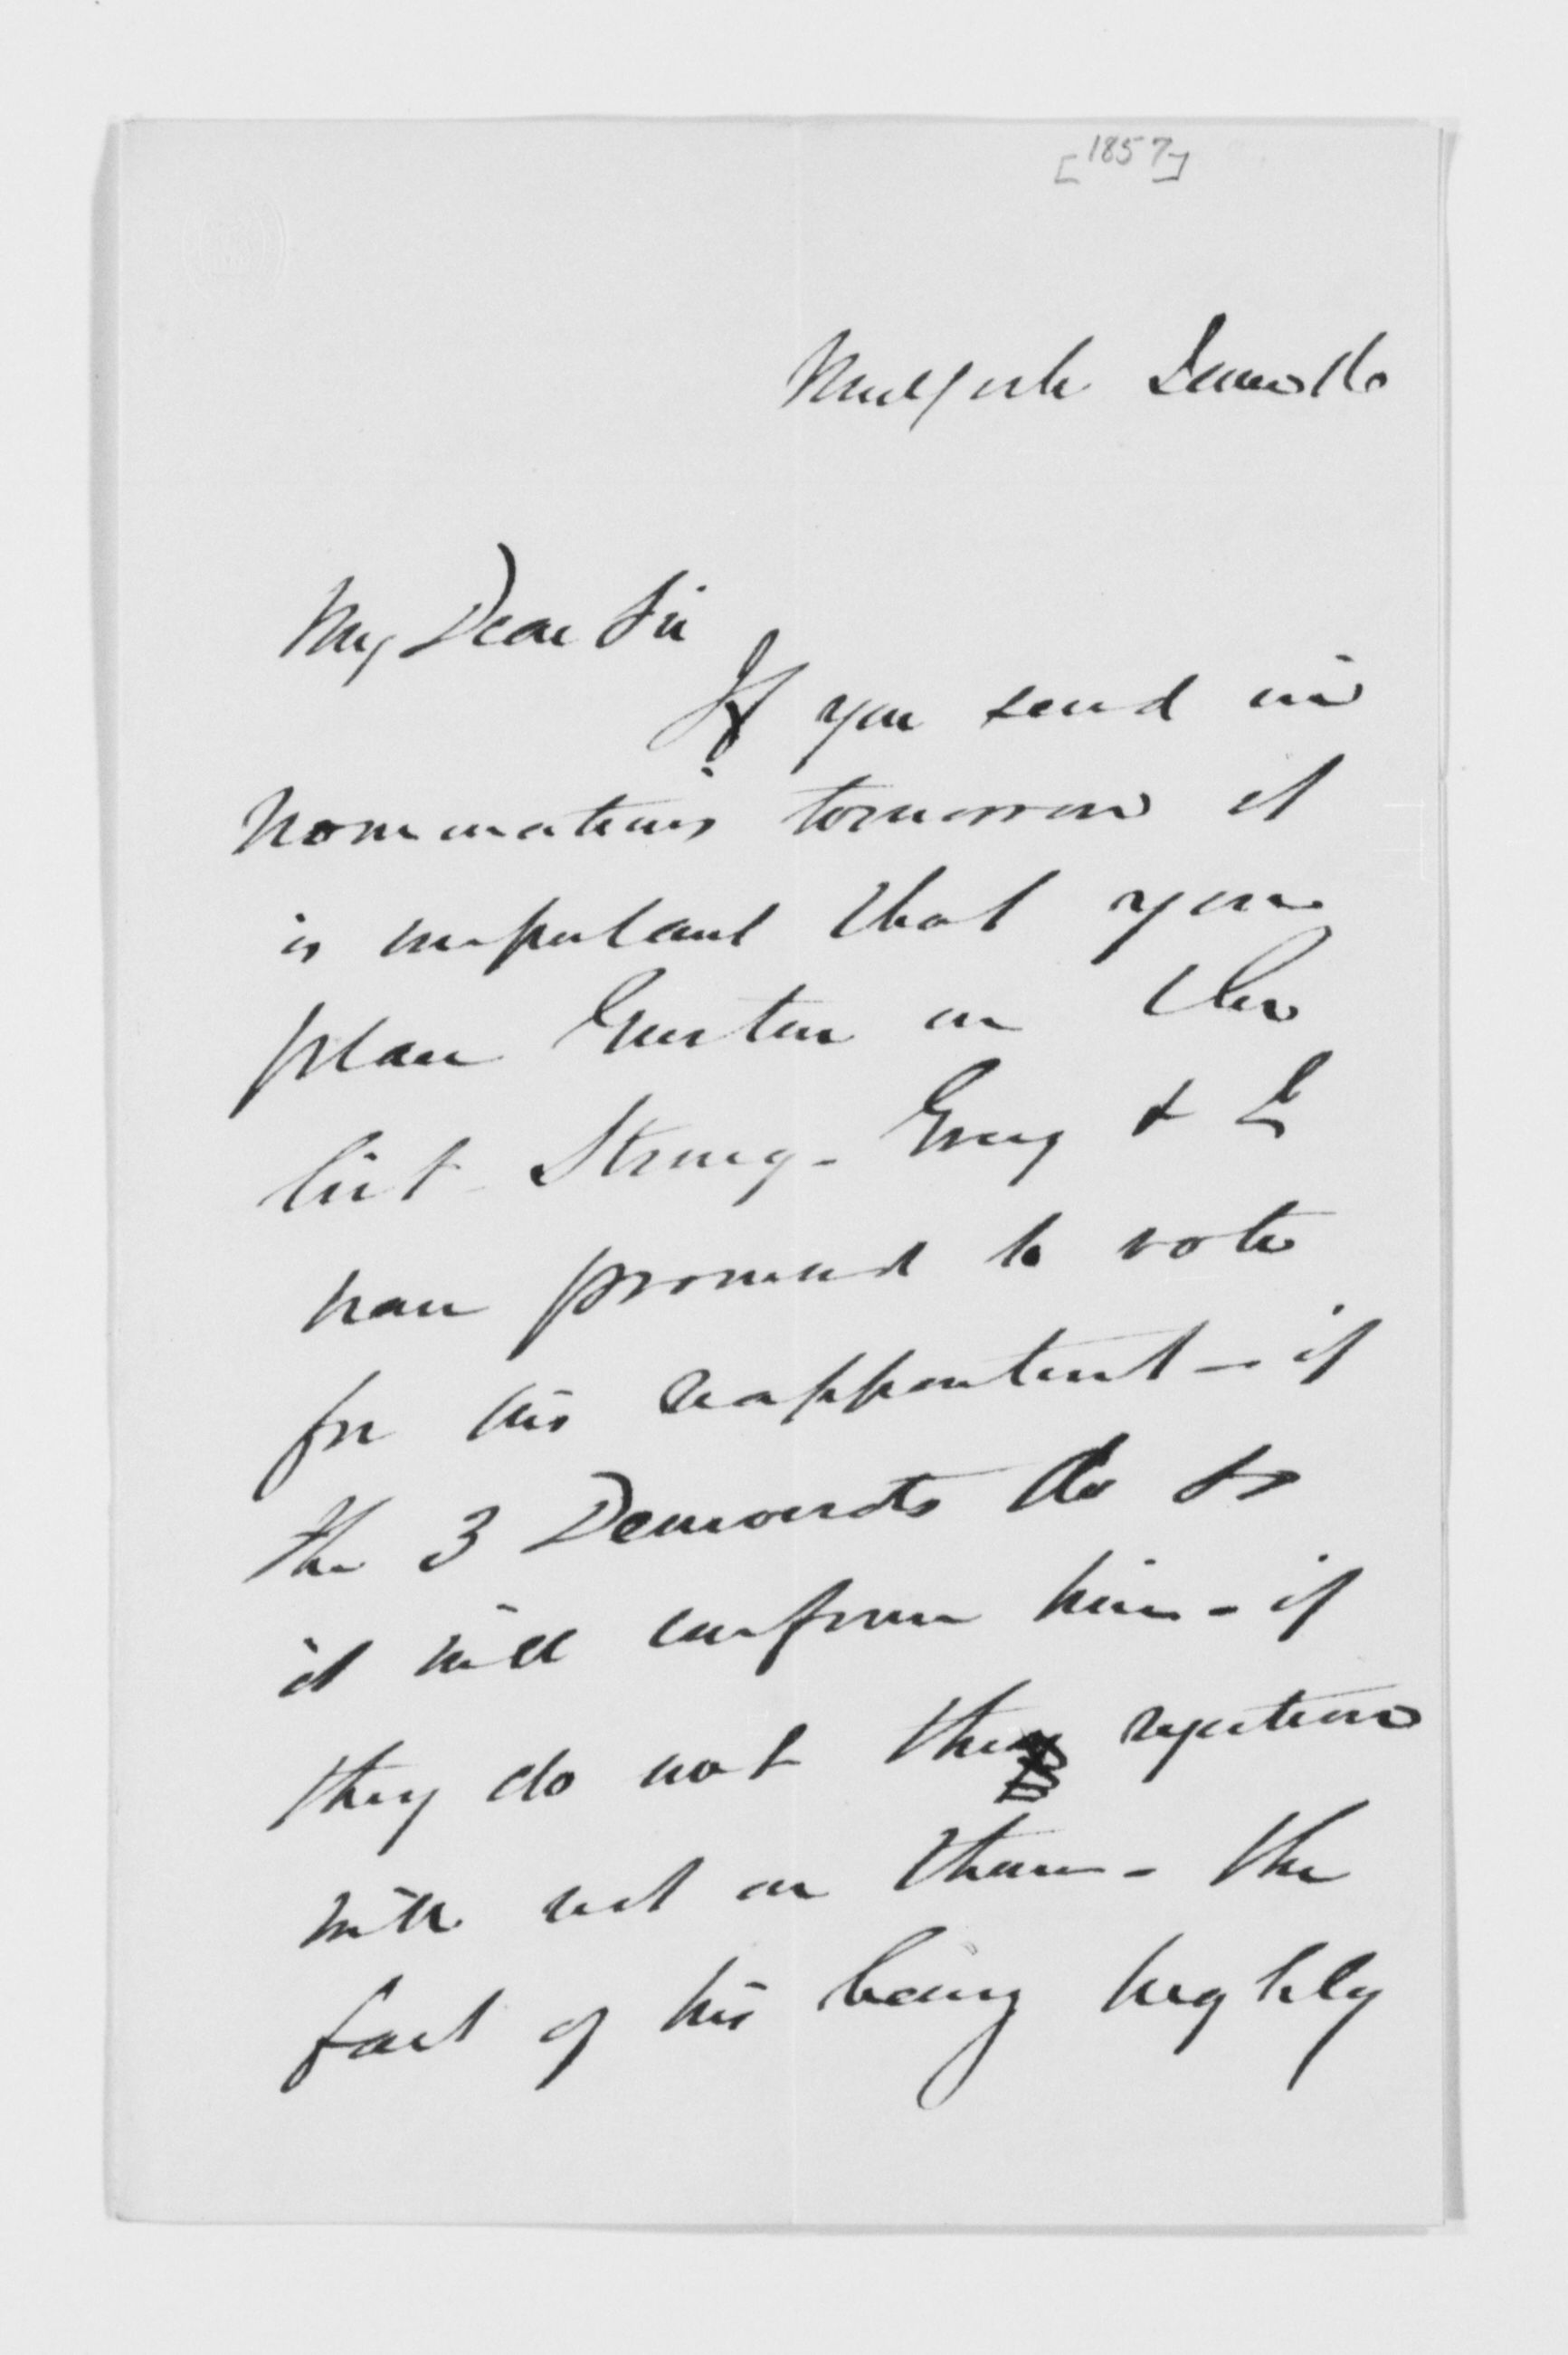 [1857]
New York June 16
My Dear Sir
If you send in
nominations tomorrow it
is important that you
place in the
list Strong - Gray &
have promised to vote
for his reappointment - if
the 3 Democrats do so
it will confirm him - if
they do not the rejection
will rest on them - the
fact of his being highly